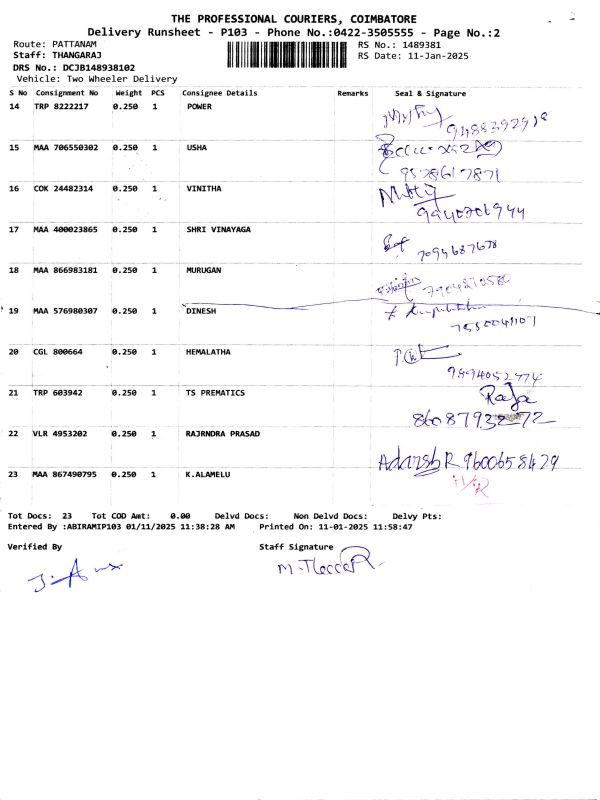 THE PROFESSIONAL COURIERS, COIMBATORE
Delivery Runsheet - P103 - Phone No.:0422-3505555 - Page No.:2
Route: PATTANAM
RS No.: 1489381
Staff: THANGARAJ
RS Date: 11-Jan-2025
DRS No.: DCJB148938102
Vehicle: Two Wheeler Delivery
S No Consignment No Weight PCS Consignee Details Remarks Seal & Signature
14 TRP 8222217 0.250 1 POWER
15 MAA 706550302 0.250 1 USHA
9578617871
16 COK 24482314 0.250 1 VINITHA
9940706944
17 MAA 400023865 0.250 1 SHRI VINAYAGA
7094687678
18 MAA 866983181 0.250 1 MURUGAN
19 MAA 576980307 0.250 1 DINESH
20 CGL 800664 0.250 1 HEMALATHA
9894052774
21 TRP 603942 0.250 1 TS PREMATICS Raja
8608793272
22 VLR 4953202 0.250 1 RAJRNDRA PRASAD
Adarsh R 9600658429
23 MAA 867490795 0.250 1 K.ALAMELU
Tot Docs: 23 Tot COD Amt: 0.00 Delvd Docs: Non Delvd Docs: Delvy Pts:
Entered By :ABIRAMIP103 01/11/2025 11:38:28 AM Printed On: 11-01-2025 11:58:47
Verified By Staff Signature